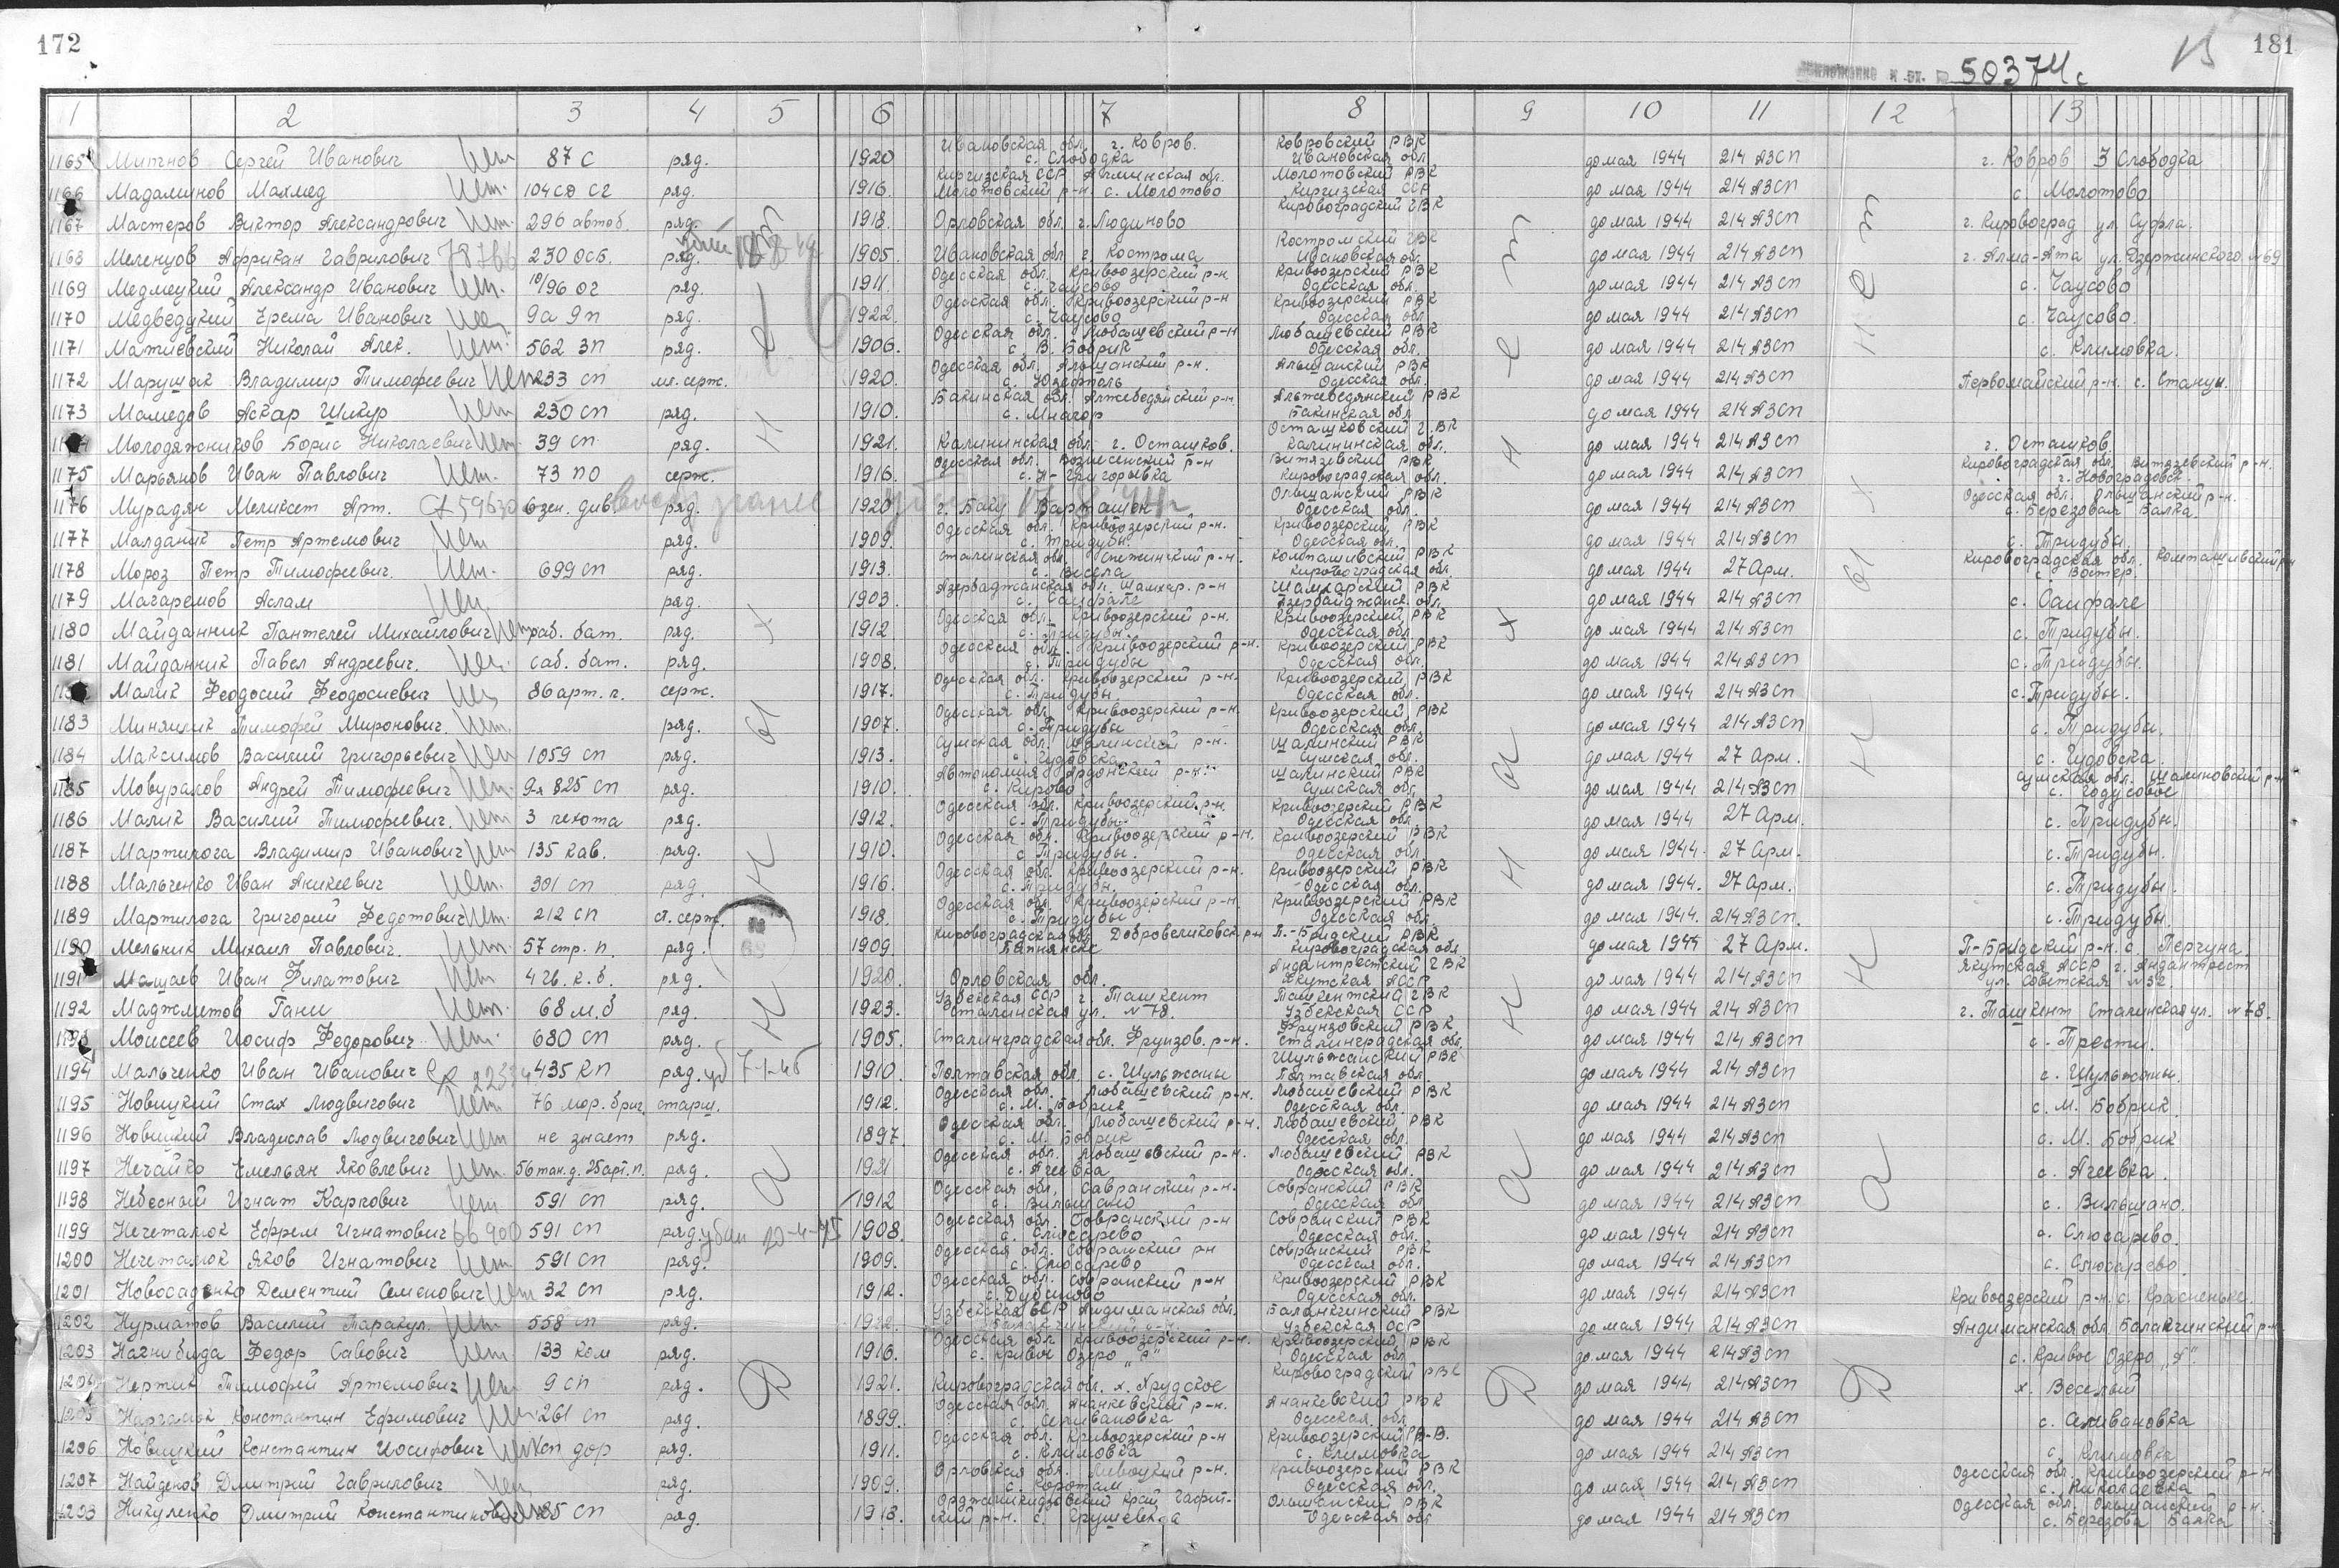 172
181
50374с
1 2 3 4 5 6 7 8 9 10 11 12 13
1165 Митнов Сергей Иванович Нет 87 С ряд. 1920 Ивановская обл. г. Ковров. с. Слободка Ковровский РВК Ивановская обл. до мая 1944 214 АЗСП г. Ковров 3 Слободка
1166 Мадаминов Махмед Нет. 104 ряд. 1916. Киргизская ССР Молотовский р-н. с. Молотово Молотовский РВК Киргизская ССР до мая 1944 214 АЗСП с. Молотово
1167 Мастеров Виктор Александрович Нет. 296 автоб. ряд. 1918. Орловская обл. г. Людиново Кировоградский ГВК до мая 1944 214 АЗСП г. Кировоград ул. Суфла.
1168 Меленцов Африкан Гаврилович 78766 230 осб. ряд. 1905. Ивановская обл. г. Кострома Костромский ГВК Ивановская обл. до мая 1944 214 АЗСП г. Алма-Ата ул. Дзержинского №69
1169 Медмецкий Александр Иванович Нет. 10/96 ог ряд. 1911. Одесская обл. Кривоозерский р-н с. Чаусово Кривоозерский РВК Одесская обл. до мая 1944 214 АЗСП с. Чаусово
1170 Медведуцкий Ерема Иванович Нет. 9а 9п ряд. 1922. Одесская обл. Кривоозерский р-н с. Чаусово Кривоозерский РВК Одесская обл. до мая 1944 214 АЗСП с. Чаусово.
1171 Матиевский Николай Алек. Нет. 562 зп ряд. 1906. Одесская обл. Любашевский р-н с. В. Бобрик Любашевский РВК Одесская обл. до мая 1944 214 АЗСП с. Климовка.
1172 Марущак Владимир Тимофеевич Нет 233 сп мл. серж. 1920. Одесская обл. Альшанский р-н. с. Юзефполь Альшанский РВК Одесская обл. до мая 1944 214 АЗСП Первомайский р-н. с. Станци.
1173 Мамедов Аскар Шикур Нет 230 сп ряд. 1910. Бакинская обл. Бакинская обл. до мая 1944 214 АЗСП
Молодяжников Борис Николаевич Нет. 39 сп ряд. 1921. Калининская обл. г. Осташков. Осташковский Г.ВК Калининская обл. до мая 1944 214 АЗСП г. Осташков.
1175 Марьянов Иван Павлович Нет. 73 по серж. 1916. Одесская обл. Вознесенский р-н с. Н-Григорьевка Витязевский РВК Кировоградская обл. до мая 1944 214 АЗСП Кировоградская обл. Витязевский р-н. г. Новоградовк.
1176 Мурадян Меликсет Арт. 6 зен. див ряд. 1920 г. Баку Ольшанский РВК Одесская обл. до мая 1944 214 АЗСП Одесская обл. Ольшанский р-н. с. Березовая Балка.
1177 Малданик Петр Артемович Нет ряд. 1909. Одесская обл. Кривоозерский р-н. с. Тридубы. Кривоозерский РВК Одесская обл. до мая 1944 214 АЗСП с. Тридубы.
1178 Мороз Петр Тимофеевич. Нет. 699 сп ряд. 1913. Сталинская обл. с. Весела РВК Кировоградская обл. до мая 1944 27 Арм. Кировоградская обл.
1179 Магаремов Аслам Нет. ряд. 1903. Азербаджанская обл. Шамхар. р-н Шамхарский РВК Азербайджанск. обл. до мая 1944 214 АЗСП с. Саифале
1180 Майданник Пантелей Михайлович Нет раб. бат. ряд. 1912 Одесская обл. Кривоозерский р-н. с. Тридубы. Кривоозерский РВК Одесская обл. до мая 1944 214 АЗСП с. Тридубы.
1181 Майданник Павел Андреевич. Нет. саб. бат. ряд. 1908. Одесская обл. Кривоозерский р-н. с. Тридубы Кривоозерский РВК Одесская обл. до мая 1944 214 АЗСП с. Тридубы.
Малик Феодосий Феодосиевич Нет 86 арт. п. серж. 1917. Одесская обл. Кривоозерский р-н. с. Тридубы. Кривоозерский РВК Одесская обл. до мая 1944 214 АЗСП с. Тридубы.
1183 Минящик Тимофей Миронович. Нет. ряд. 1907. Одесская обл. Кривоозерский р-н. с. Тридубы Кривоозерский РВК Одесская обл. до мая 1944 214 АЗСП с. Тридубы.
1184 Максимов Василий Григорьевич Нет 1059 сп ряд. 1913. Сумская обл. Шалинский р-н. с. Чудовска Шалинский РВК Сумская обл. до мая 1944 27 Арм. с. Чудовска.
1185 Мовуралов Андрей Тимофеевич Нет. 9я 825 сп ряд. 1910. Автономия Ардонский р-н. с. Кирово Шалинский РВК Сумская обл. до мая 1944 214 АЗСП Сумская обл. Шалиновский р-н
1186 Малик Василий Тимофеевич. Нет 3 пехота ряд. 1912. Одесская обл. Кривоозерский р-н. с. Тридубы. Кривоозерский РВК Одесская обл. до мая 1944 27 Арм. с. Тридубы.
1187 Мартилога Владимир Иванович Нет 135 кав. ряд. 1910. Одесская обл. Кривоозерский р-н. с. Тридубы. Кривоозерский РВК Одесская обл. до мая 1944. 27 Арм. с. Тридубы.
1188 Мальченко Иван Аникеевич Нет. 301 сп ряд. 1916. Одесская обл. Кривоозерский р-н. с. Тридубы. Кривоозерский РВК Одесская обл. до мая 1944. 27 Арм. с. Тридубы.
1189 Мартилога Григорий Федотович Нет. 212 сп ст. серж. 1918. Одесская обл. Кривоозерский р-н. с. Тридубы Кривоозерский РВК Одесская обл. до мая 1944. 214 АЗСП. с. Тридубы.
1190 Мельник Михаил Павлович. Нет. 57 стр. п. ряд. 1909. Кировоградская обл. Добровеликовск. р-н РВК Кировоградская обл. до мая 1944 27 Арм. П-Бридский р-н. с. Перчуна.
1191 Машаев Иван Филатович Нет 4 гв. к. д. ряд. 1920. Орловская обл. ГВК Якутская АССР до мая 1944 214 АЗСП Якутская АССР ул. Советская №32.
1192 Маджметов Гани Нет. 68 м. д ряд. 1923. Узбекская ССР г. Ташкент Сталинская ул. №78. Ташкентский ГВК Узбекская ССР до мая 1944 214 АЗСП г. Ташкент Сталинская ул. №78.
Моисеев Иосиф Федорович Нет. 680 сп ряд. 1905. Сталинградская обл. Фрунзов. р-н. Фрунзовский РВК Сталинградская обл. до мая 1944 214 АЗСП
1194 Мальченко Иван Иванович 435 кп ряд. уб 7-1-45 1910 Полтавская обл. с. Шульжаны Шульжанский РВК Полтавская обл. до мая 1944 214 АЗСП с. Шульжаны.
1195 Новицкий Стах Людвигович Нет 76 мор. бриг. старш. 1912. Одесская обл. Любашевский р-н. с. М. Бобрик Любашевский РВК Одесская обл. до мая 1944 214 АЗСП с. М. Бобрик.
1196 Новицкий Владислав Людвигович Нет не знает ряд. 1897. Одесская обл. Любашевский р-н. с. М. Бобрик Любашевский РВК Одесская обл. до мая 1944 214 АЗСП с. М. Бобрик
1197 Нечайко Емельян Яковлевич Нет. 56 тан. д. 25 арт. п. ряд. 1921 Одесская обл. Любашевский р-н. с. Агеевка Любашевский РВК Одесская обл. до мая 1944 214 АЗСП с. Агеевка.
1198 Небесный Игнат Карпович Нет 591 сп ряд. 1912 Одесская обл. Савранский р-н. с. Вильшано Совранский РВК Одесская обл. до мая 1944 214 АЗСП с. Вильшано.
1199 Нечеталюк Ефрем Игнатович 66900 591 сп ряд. убит 20-4-45 1908. Одесская обл. Совранский р-н с. Слюсарево Совранский РВК Одесская обл. до мая 1944 214 АЗСП с. Слюсарево.
1200 Нечеталюк Яков Игнатович Нет 591 сп ряд. 1909. Одесская обл. Совранский р-н с. Слюсарево Совранский РВК Одесская обл. до мая 1944 214 АЗСП с. Слюсарево.
1201 Новосаденко Дементий Семенович Нет 32 сп ряд. 1912. Одесская обл. Совранский р-н с. Дубиново Кривоозерский РВК Одесская обл. до мая 1944 214 АЗСП Кривоозерский р-н. с. Красненьке.
1202 Нурматов Василий Паракул. Нет 558 сп ряд. Узбекская ССР Андиманская обл. Балакчинский РВК Узбекская ССР до мая 1944 214 АЗСП Андиманская обл. Балакчинский р-н
1203 Нагнибида Федор Савович Нет 133 ком ряд. 1916. Одесская обл. Кривоозерский р-н. с. Кривое Озеро Кривоозерский РВК Одесская обл. до мая 1944 214 АЗСП с. Кривое Озеро
1204 Нертик Тимофей Артемович Нет 9 сп ряд. 1921. Кировоградская обл. х. Хрудское Кировоградский РВК до мая 1944 214 АЗСП х. Веселый
1205 Константин Ефимович Нет 261 сп ряд. 1899. Одесская обл. Ананьевский р-н. с. Селивановка Ананьевский РВК Одесская обл. до мая 1944 214 АЗСП с. Селивановка
1206 Новицкий Константин Иосифович Нет дор ряд. 1911. Одесская обл. Кривоозерский р-н с. Климовка Кривоозерский с. Климовка до мая 1944 214 АЗСП с. Климовка
1207 Найденов Дмитрий Гаврилович Нет ряд. 1909. Орловская обл. р-н. Кривоозерский РВК Одесская обл. до мая 1944 214 АЗСП Одесская обл. Кривоозерский р-н с. Николаевка
1208 Никуленко Дмитрий Константинович 185 сп ряд. 1918. Орджоникидзевский край р-н. с. Грушевка Ольшанский РВК Одесская обл. до мая 1944 214 АЗСП Одесская обл. Ольшанский р-н. с. Березова Балка